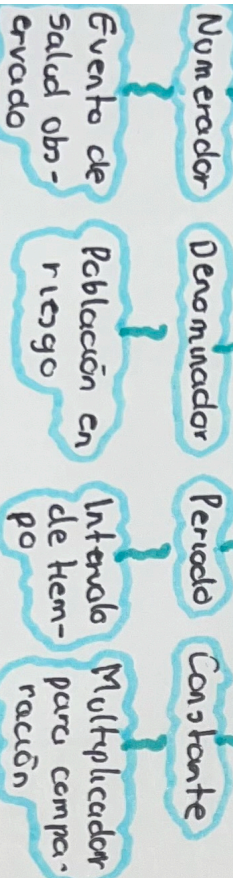 Numerador
Evento de
salud obs-
ervado
Denominador
Población en
riesgo
Periodo
Intervalo
de tiem-
po
Constante
Multiplicador
para compa-
ración